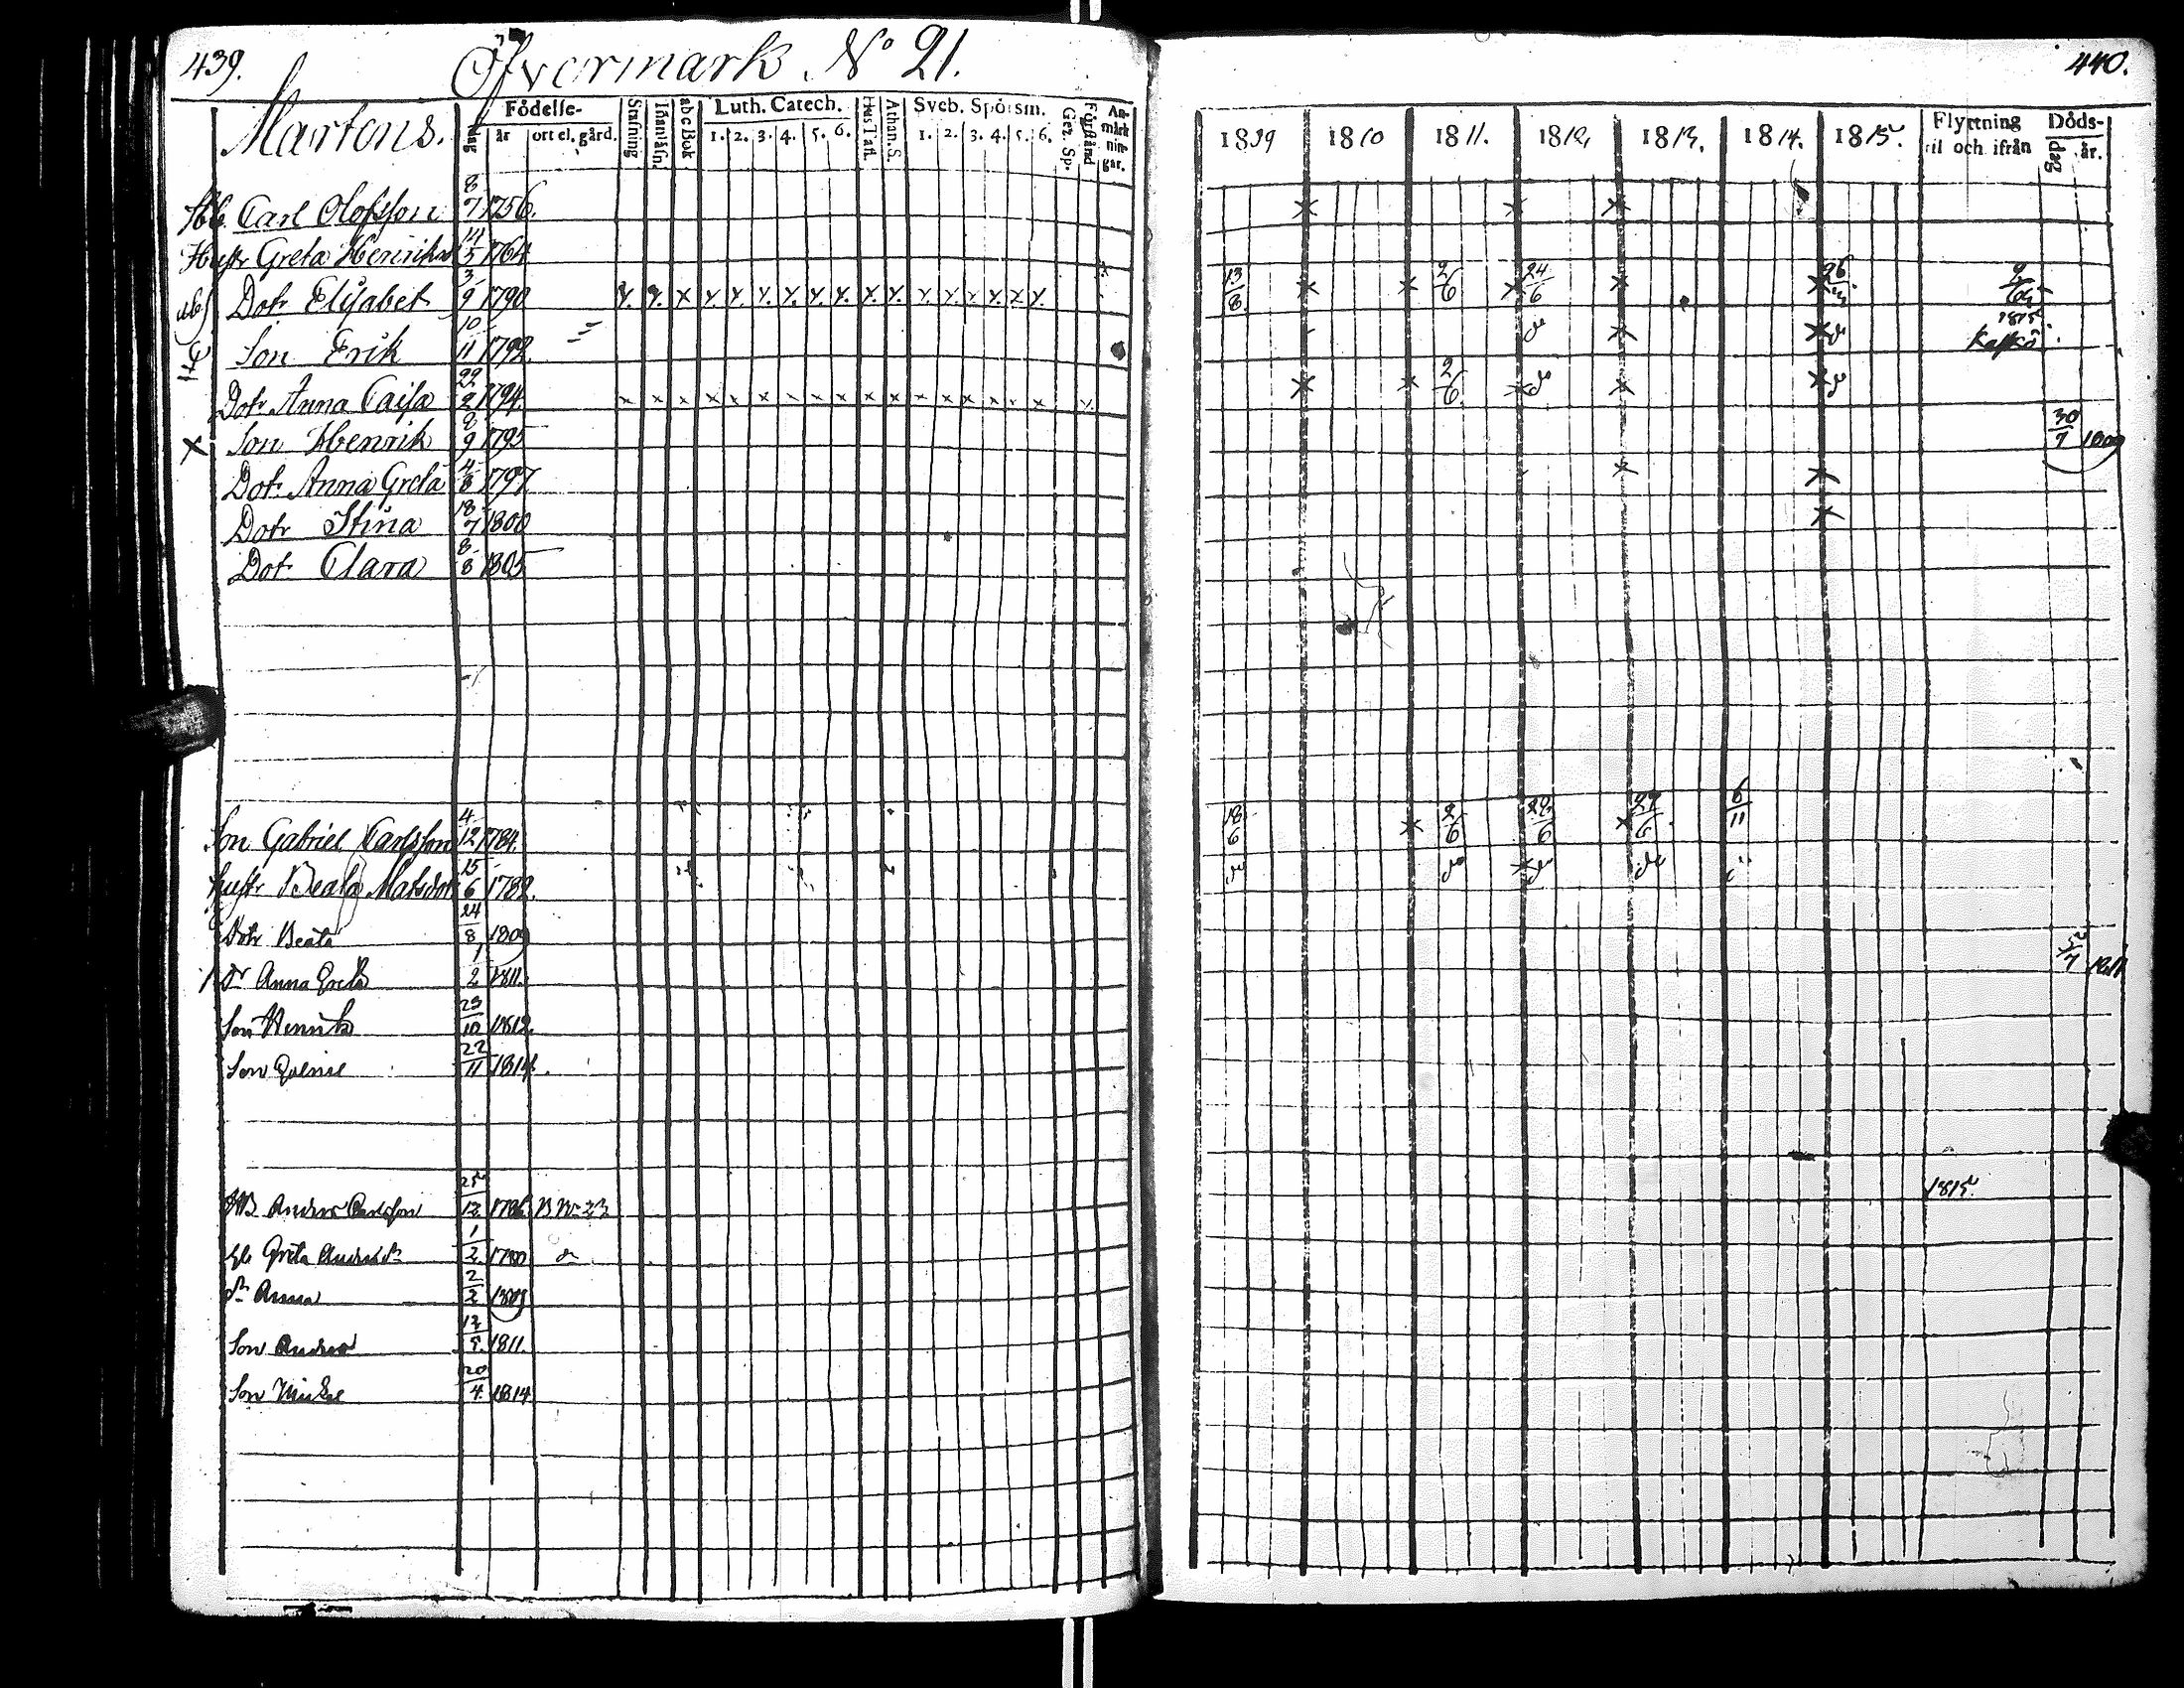 439.
Öfvermark No 21.
Martens.
Födelse-
dag
år
ort el. gård.
Stafning
Innanläsn.
abc Bok
Luth. Catech.
1. 2. 3. 4. 5. 6.
Hus Tafl.
Athan. S.
Sveb. Spörsm.
1. 2. 3. 4. 5. 6.
Gez. Sp.
Förstånd
An-
märk
nin-
gar.
Carl Olofsson 8/7 1756.
Hustr Greta Henriksd 14/5 1764
Dotr Elisabet 3/9 1790 x x x x x x x x x x x x x x x x x
Son Erik 10/11 1792.
Dotr Anna Caisa 22/2 1794. x x x x x x x x x x x x x x x x x x
x Son Henrik 8/9 1795
Dotr Anna Greta 4/8 1797
Dotr Stina 18/7 1800
Dotr Clara 8/8 1805
Son Gabriel Carlsson 4/12 1784.
Hustr Beata Matsdotr 15/6 1782.
Dotr Beata 24/8 1809
Dr Anna Greta 1/2 1811.
Son Henrik 23/10 1812.
Son Gabriel 22/11 1814.
Andres Carlsson 25/12 1786
Greta Andersdr 1/2 1780
Dr Anna 2/2 1809
Son Andres 1811.
Son Mickel 20/4. 1814
440.
1809 1810 1811. 1812. 1813. 1814. 1815.
Flyttning
til och ifrån
Döds-
dag
år.
x x x
13/8 x x 2/6 24/6 x x
1815
x x
Kaskö
x x 2/6 x x x
30/7 1809
x x
x
18/6 x 2/6 24/6 x 6/11
1811
1815.